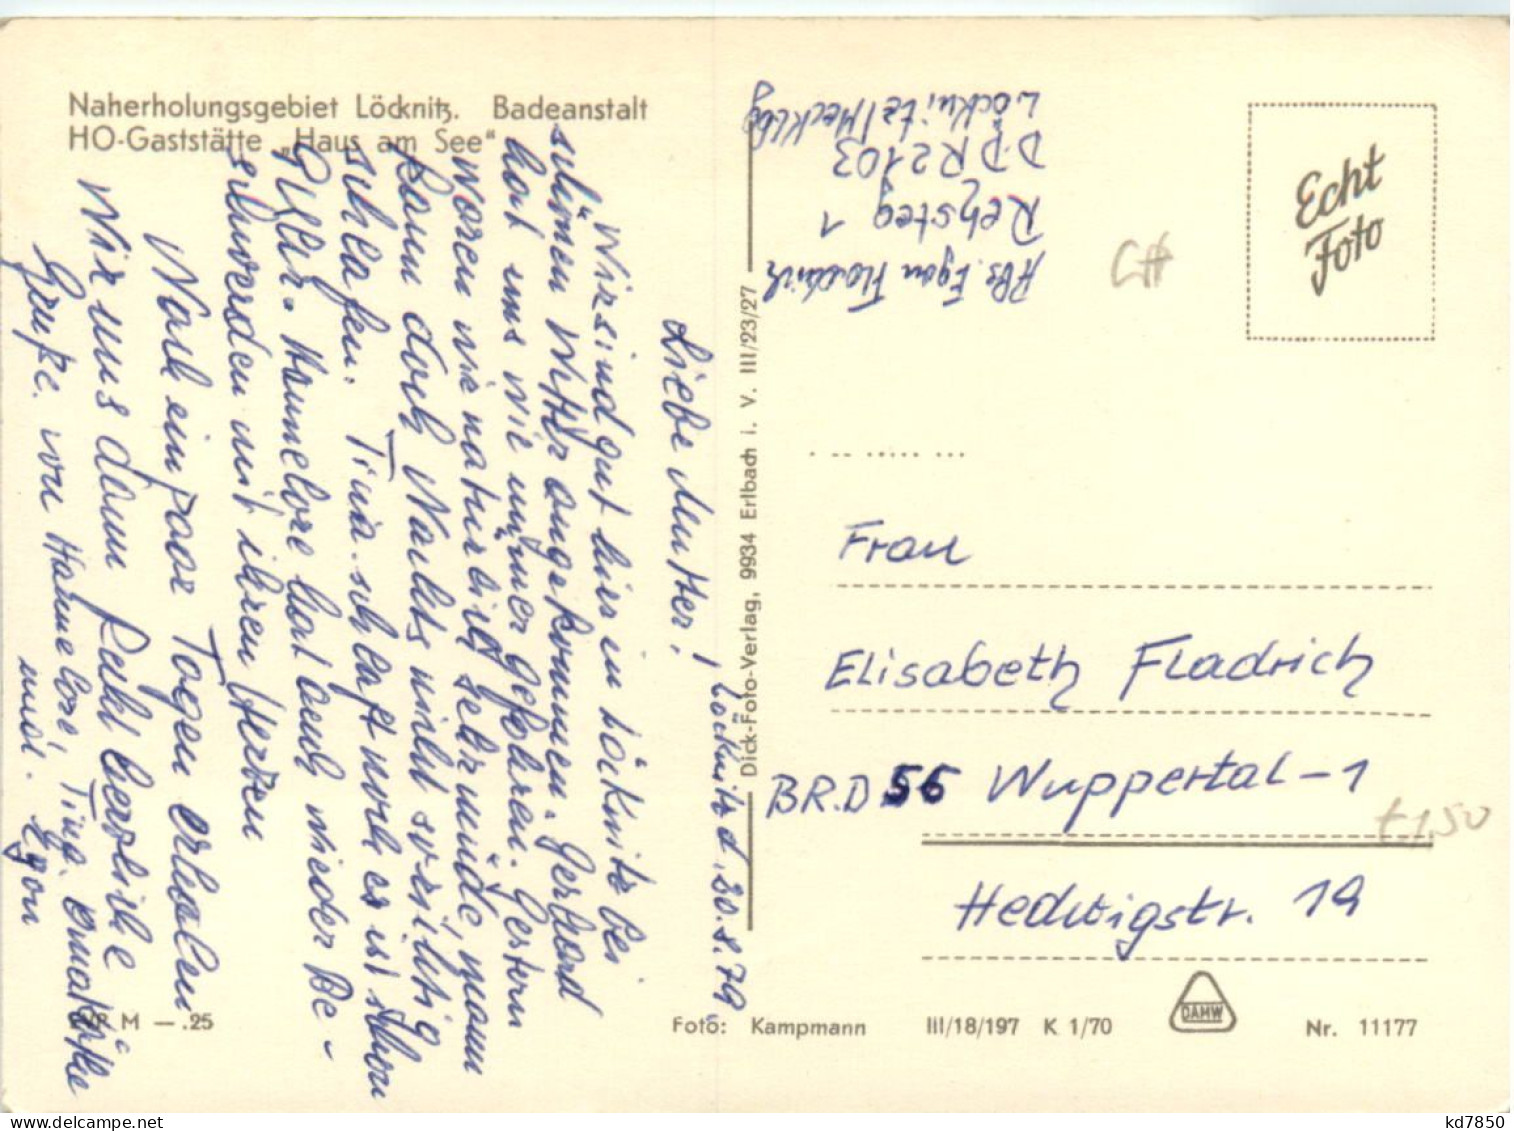 Naherholungsgebiet Löcknitz. Badeanstalt
HO-Gaststätte „Haus am See"
Löcknitz d. 20.8.79
Liebe Mutter!
Wir sind gut hier in Löcknitz bei
schönem Wetter angekommen. Gerhard
hat uns wie immer gefahren. Gestern
waren wir natürlich sehr müde, man
kann doch Nachts nicht so richtig
schlafen. Tina schläft noch es ist schon
9 Uhr. Hannelore hat auch wieder Be-
schwerden mit ihren Herzen
Nach ein paar Tagen erholen
Wir uns dann Recht herzliche
Grüße von Hannelore, Tina,
und Egon
Abs. Egon Fladrich
Rehsteg 1
DDR 2103
Löcknitz/Mecklbg
Echt
Foto
Frau
Elisabeth Fladrich
BR.D 56 Wuppertal-1
Hedwigstr. 19
£1,50
Dick-Foto-Verlag, 9934 Erlbach i. V. III/23/27
M —.25
Foto: Kampmann III/18/197 K 1/70
DAHW
Nr. 11177
kd7850